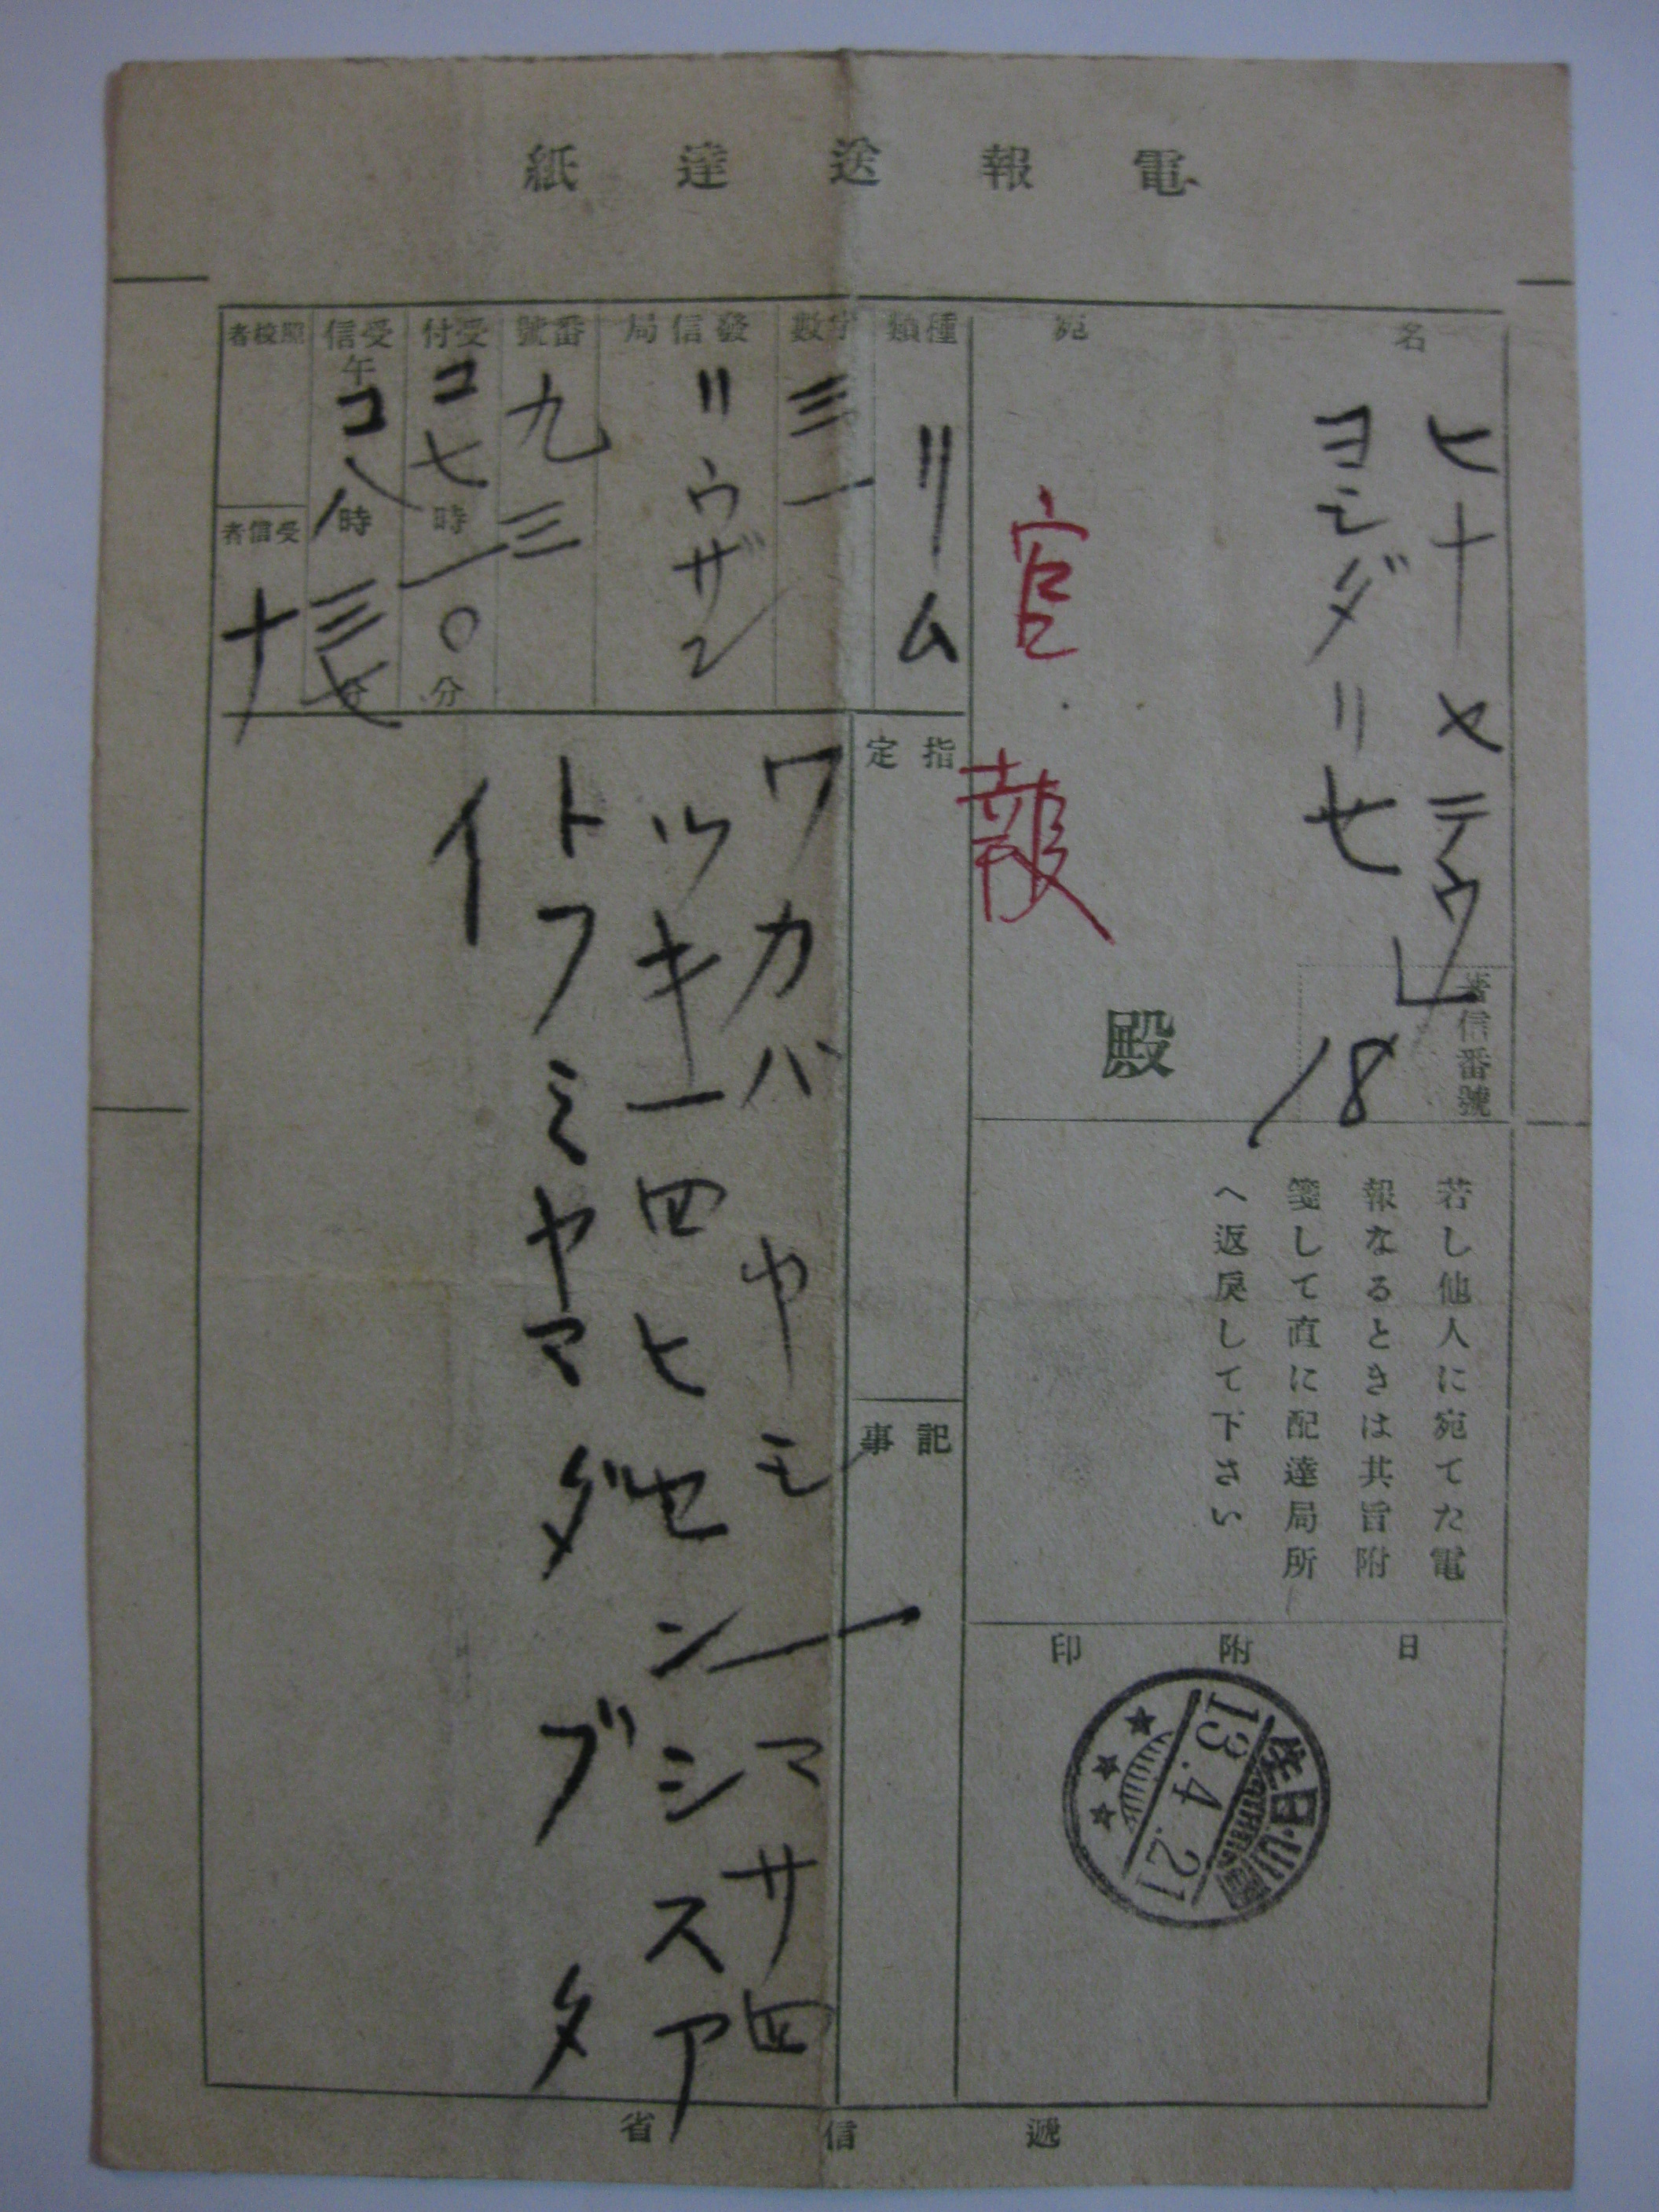 電報送達紙
宛名
ヒナメテウ」
ヨシダ〃セ
官報
殿
著信番號
18
種類
〃ム
字數
三一
發信局
〃ウザン
番號
九三
受付
コ七時一〇分
受信
午コ八時三七分
照校者
受信者
十
指定
記事
ワカバヤシ マサ四
ツキ一四ヒセンシスア
トフミヤマダブタ
イ
若し他人に宛てた電
報なるときは其旨附
箋して直に配達局所
へ返戾して下さい
日附印
13.4.21
遞信省